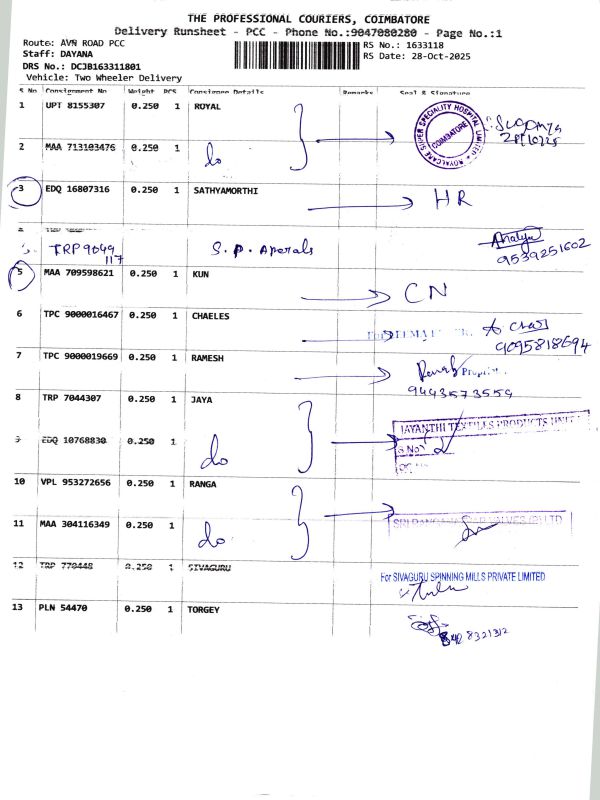 THE PROFESSIONAL COURIERS, COIMBATORE
Delivery Runsheet - PCC - Phone No.:9047080280 - Page No.:1
Route: AVN ROAD PCC
RS No.: 1633118
Staff: DAYANA
RS Date: 28-Oct-2025
DRS No.: DCJB163311801
Vehicle: Two Wheeler Delivery
S No Consignment No Weight PCS Consignee Details Remarks Seal & Signature
1 UPT 8155307 0.250 1 ROYAL
ROYALCARE SUPER SPECIALITY HOSPITAL LIMITED COIMBATORE
2 MAA 713103476 0.250 1 do
3 EDQ 16807316 0.250 1 SATHYAMORTHI HR
TRP 9049 117 S.P. Aperals
9539251602
5 MAA 709598621 0.250 1 KUN CN
6 TPC 9000016467 0.250 1 CHAELES
9095818694
7 TPC 9000019669 0.250 1 RAMESH
9443573559
8 TRP 7044307 0.250 1 JAYA
JAYANTHI TEXTILES PRODUCTS
S.No
9 EDQ 10768830 0.250 1 do
10 VPL 953272656 0.250 1 RANGA
11 MAA 304116349 0.250 1 do
12 TRP 770448 0.250 1 SIVAGURU
For SIVAGURU SPINNING MILLS PRIVATE LIMITED
13 PLN 54470 0.250 1 TORGEY